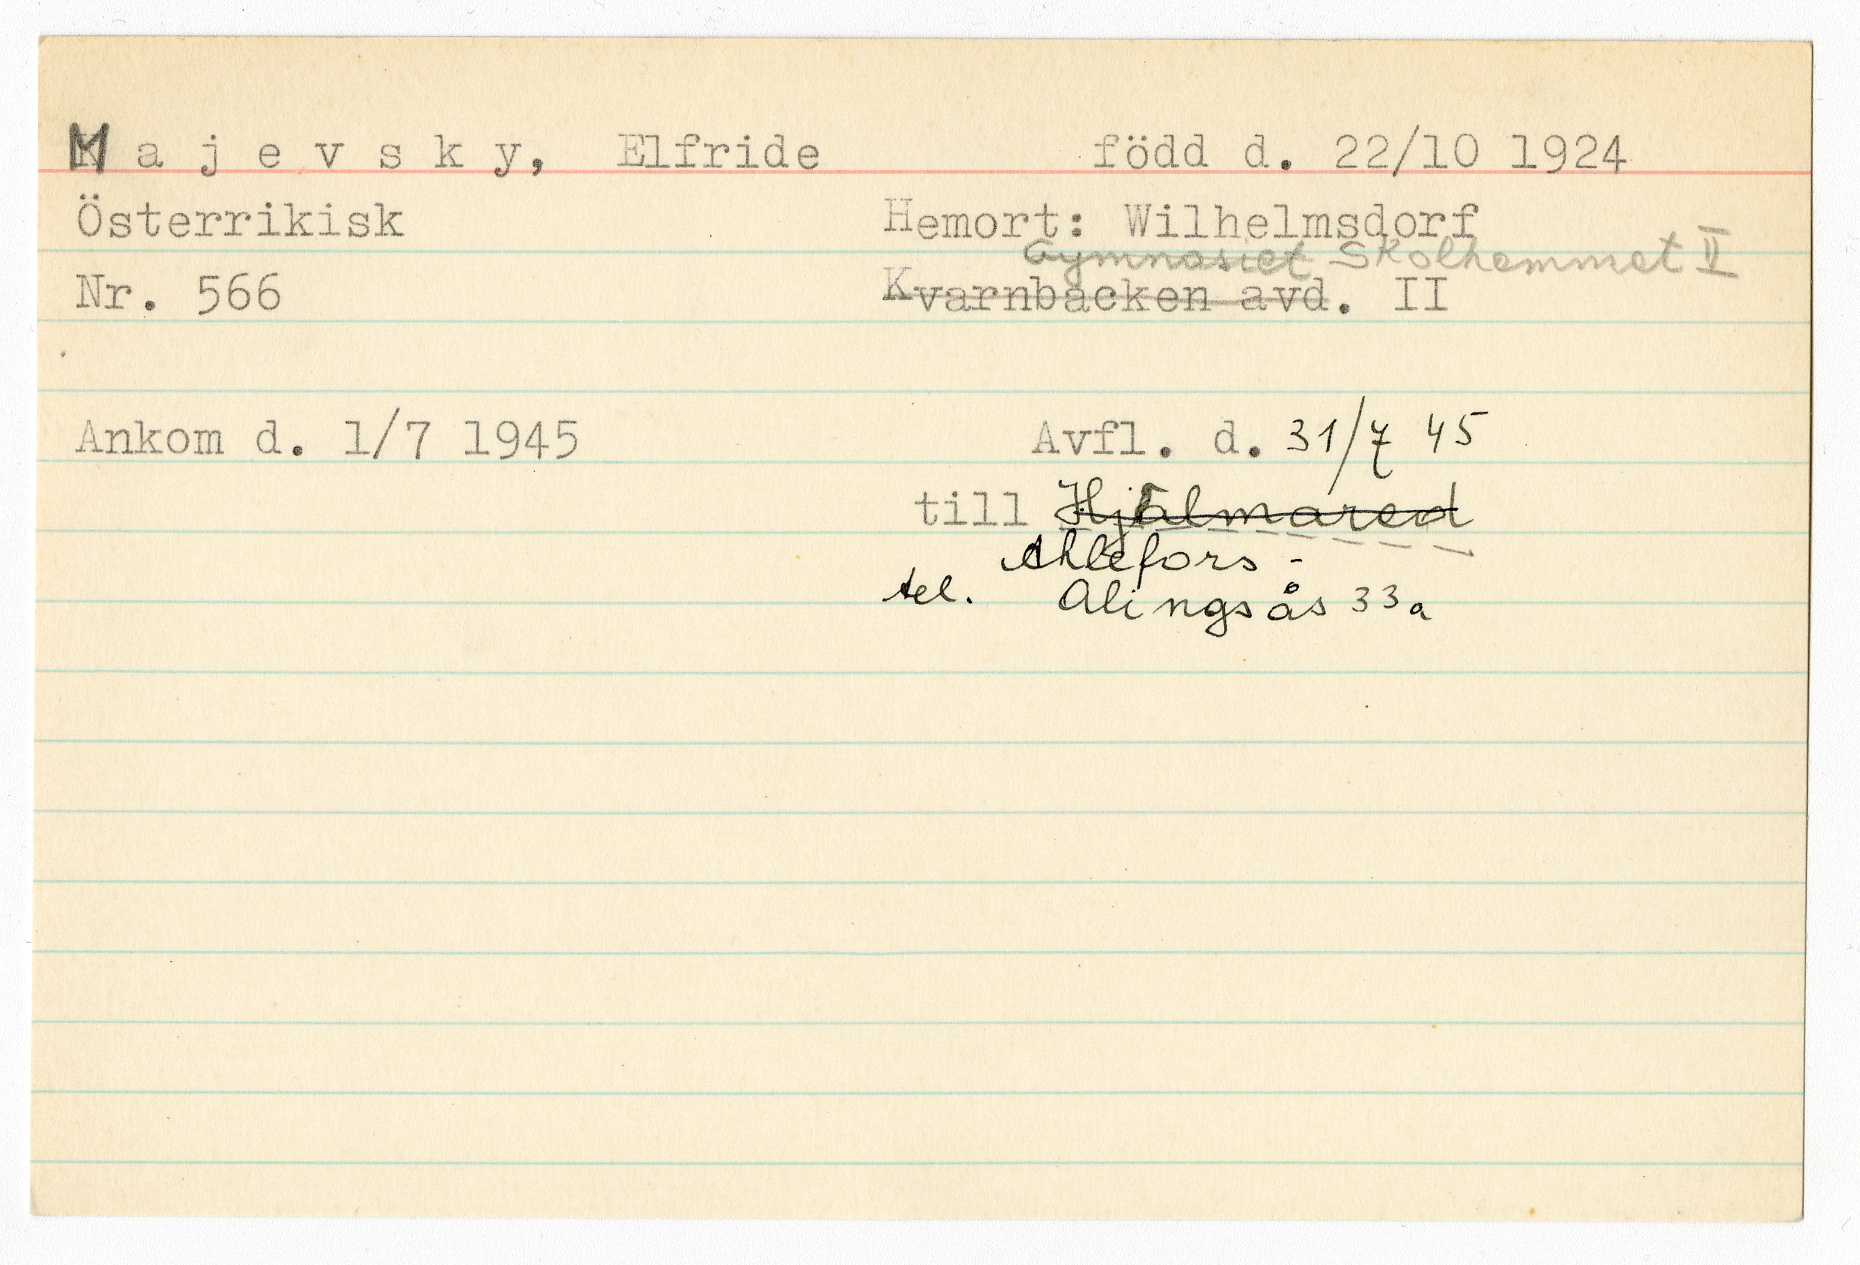 M a j e v s k y, Elfride född d. 22/10 1924
Österrikisk Hemort: Wilhelmsdorf
Gymnasiet Skolhemmet II
Nr. 566 Kvarnbacken avd. II
Ankom d. 1/7 1945 Avfl. d. 31/7 45
till Hjälmared
Ahlefors -
tel. Alingsås 33a